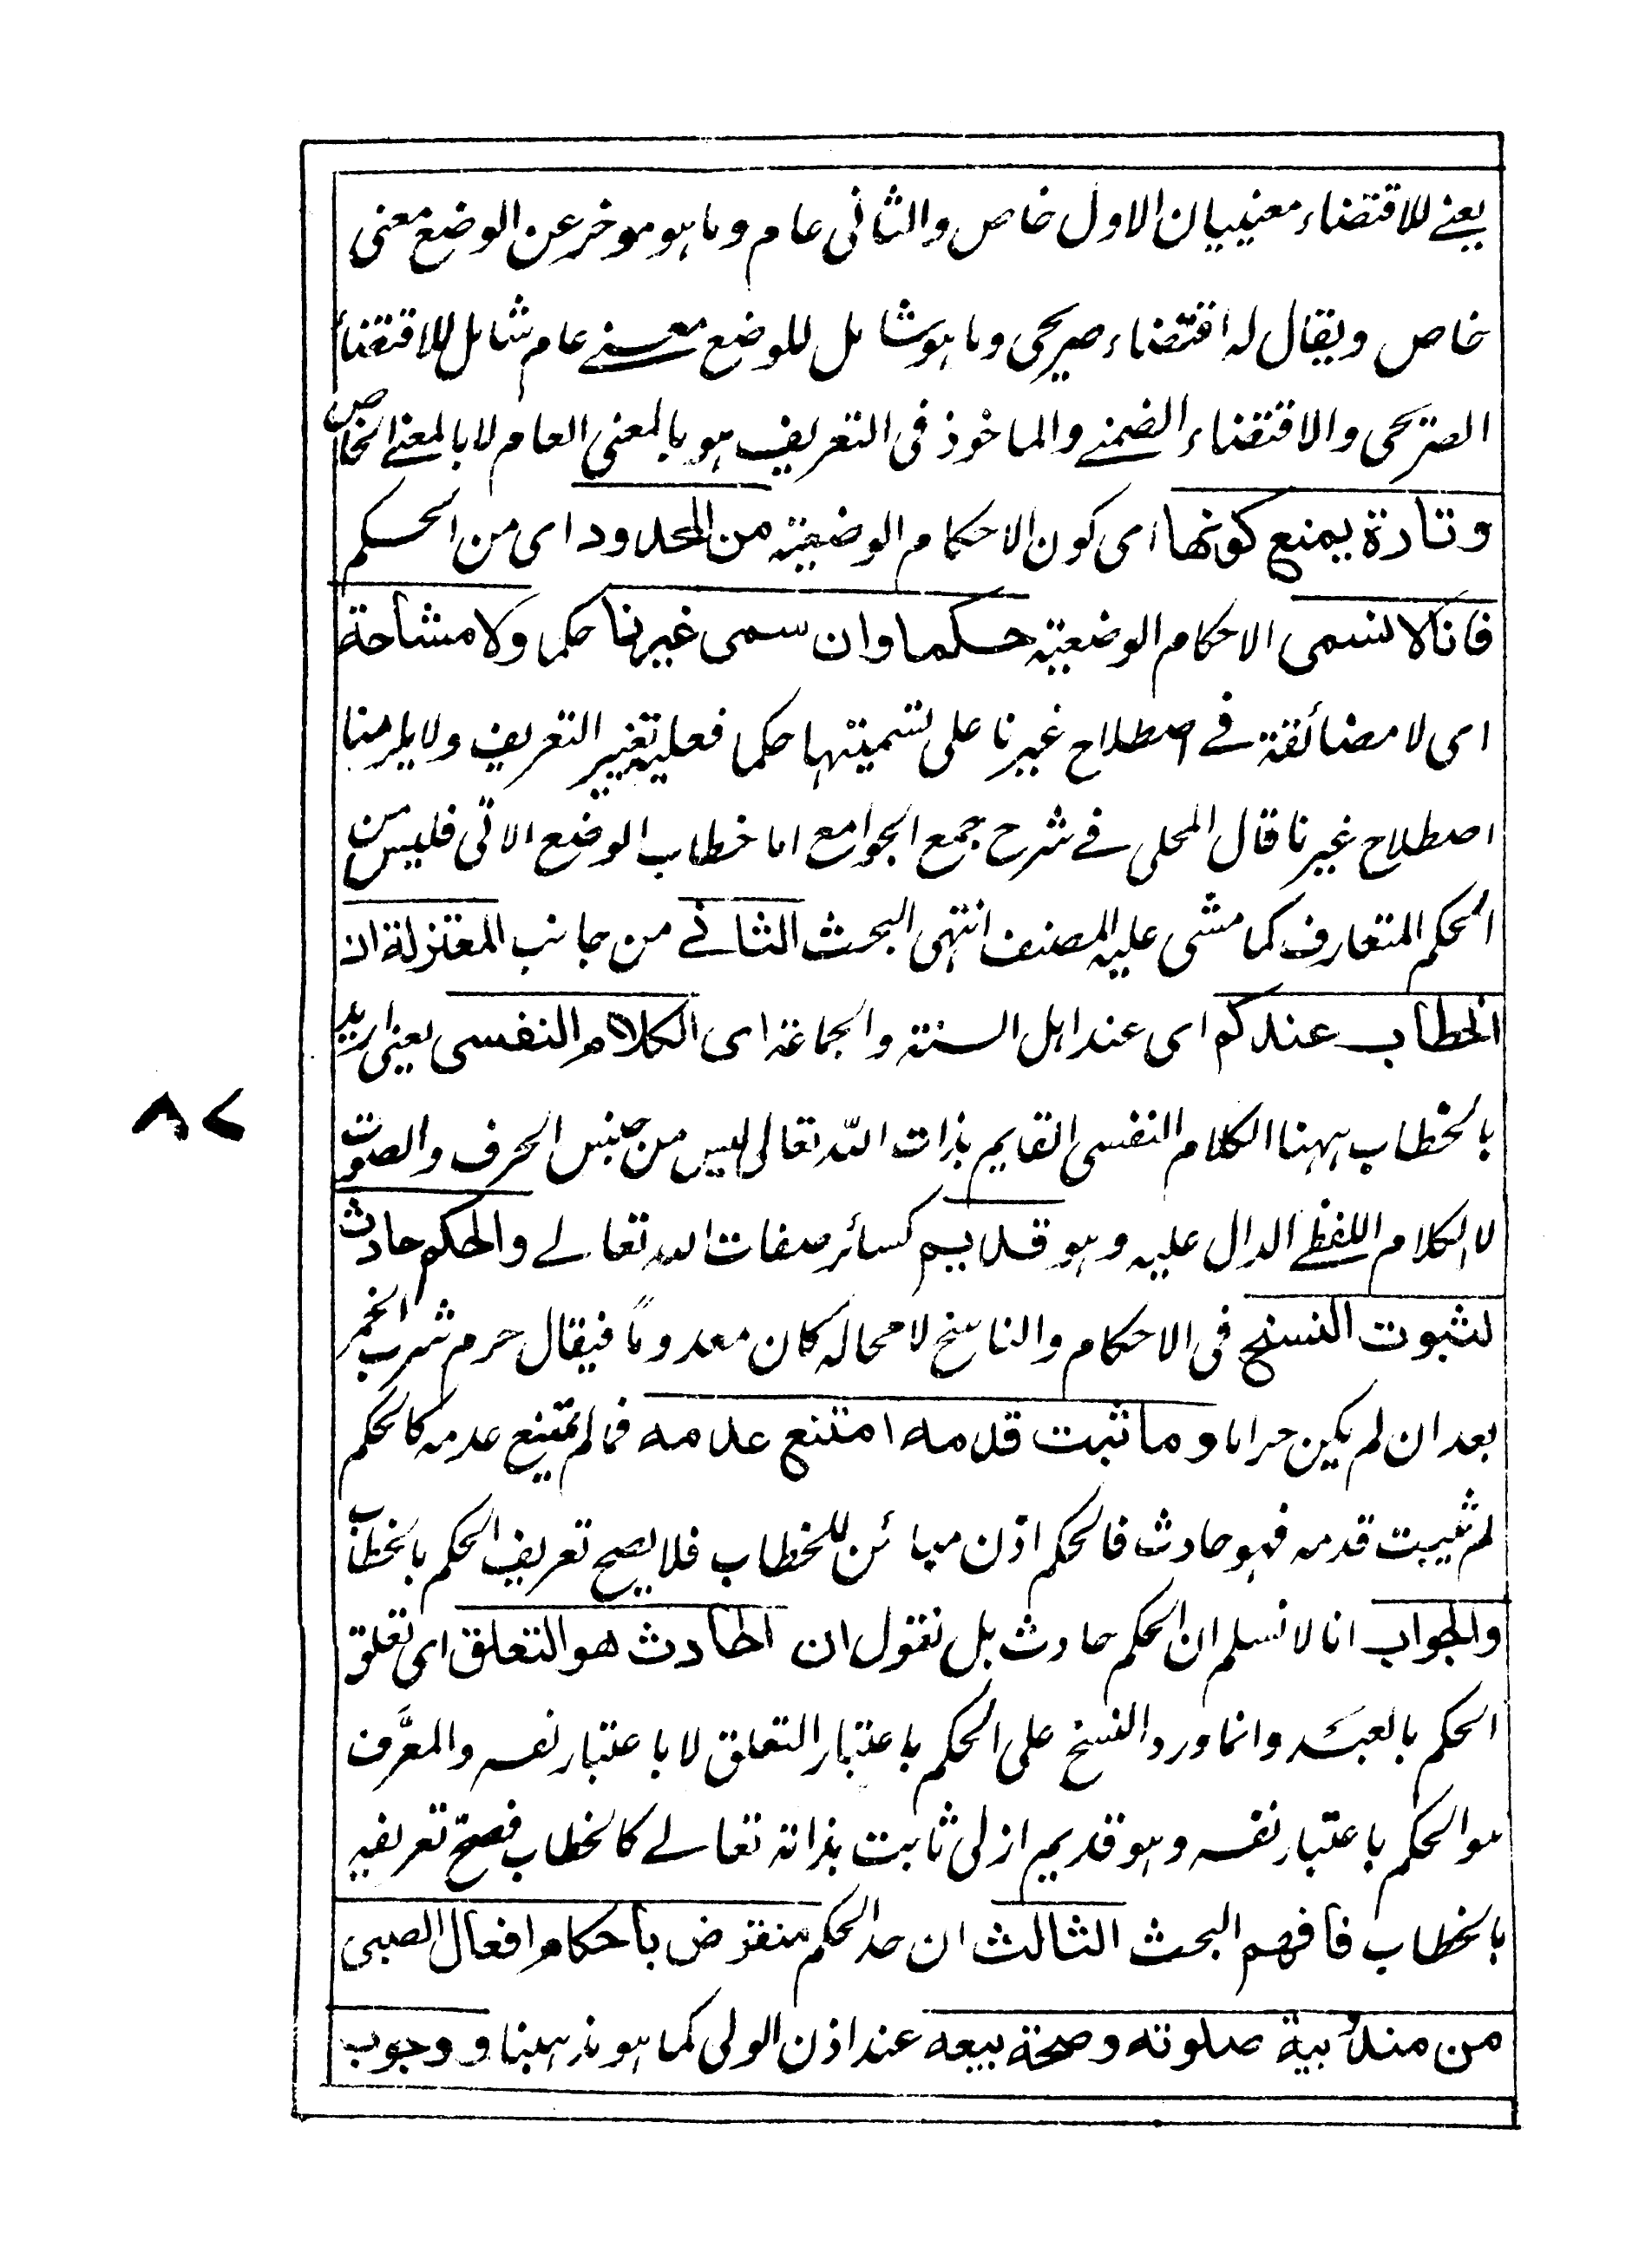 يعنے للاقتضاء معنييان الاول خاص والثانى عام وما ہو موخر عن الوضع معنى
خاص ويقال له اقتضاء صريحى وما ہو شامل للوضع معنے عام شامل للاقتضاء
الصريحى والاقتضاء الضمنے والماخوذ فى التعريف ہو بالمعنى العام لا بالمعنے الخاص
وتارة يمنع كونها اى كون الاحكام الوضعية من المحدود اى من الحكم
فانا لا نسمى الاحكام الوضعية حكما وان سمى غيرنا حكما ولا مشاحة
اى لا مضائقة فے اصطلاح غيرنا على تسميتہا حكما فعليہ تغيير التعريف ولا يلزمنا
اصطلاح غيرنا قال المحلى فے شرح جمع الجوامع اما خطاب الوضع الاتى فليس من
الحكم المتعارف كما مشى عليہ المصنف انتہى البحث الثانے من جانب المعتزلة ان
الخطاب عندكم اى عند اہل السنة والجماعة اى الكلام النفسى يعنى اريد
بالخطاب ہہنا الكلام النفسى القايم بذات اللہ تعالى ليس من جنس الحرف والصوت
لا الكلام اللفظے الدال عليہ وہو قديم كسائر صفات اللہ تعالے والحكم حادث
لثبوت النسخ فى الاحكام والناسخ لا محالہ كان معدوماً فيقال حرم شرب الخمر
بعد ان لم يكن حراما وما ثبت قدمه امتنع عدمه فما لم يمتنع عدمہ كالحكم
لم يثبت قدمہ فہو حادث فالحكم اذن مبائن للخطاب فلا يصح تعريف الحكم بالخطاب
والجواب انا لا نسلم ان الحكم حادث بل نقول ان الحادث هو التعلق اى تعلق
الحكم بالعبد وانما ورد النسخ على الحكم باعتبار التعلق لا باعتبار نفسہ والمعرَّف
ہو الحكم باعتبار نفسہ وہو قديم ازلى ثابت بذاتہ تعالے كالخطاب فصح تعريفہ
بالخطاب فافهم البحث الثالث ان حد الحكم منقوض باحكام افعال الصبى
من مندُوبية صلوته وصحة بيعه عند اذن الولى كما ہو مذہبنا ووجوب
٨٧